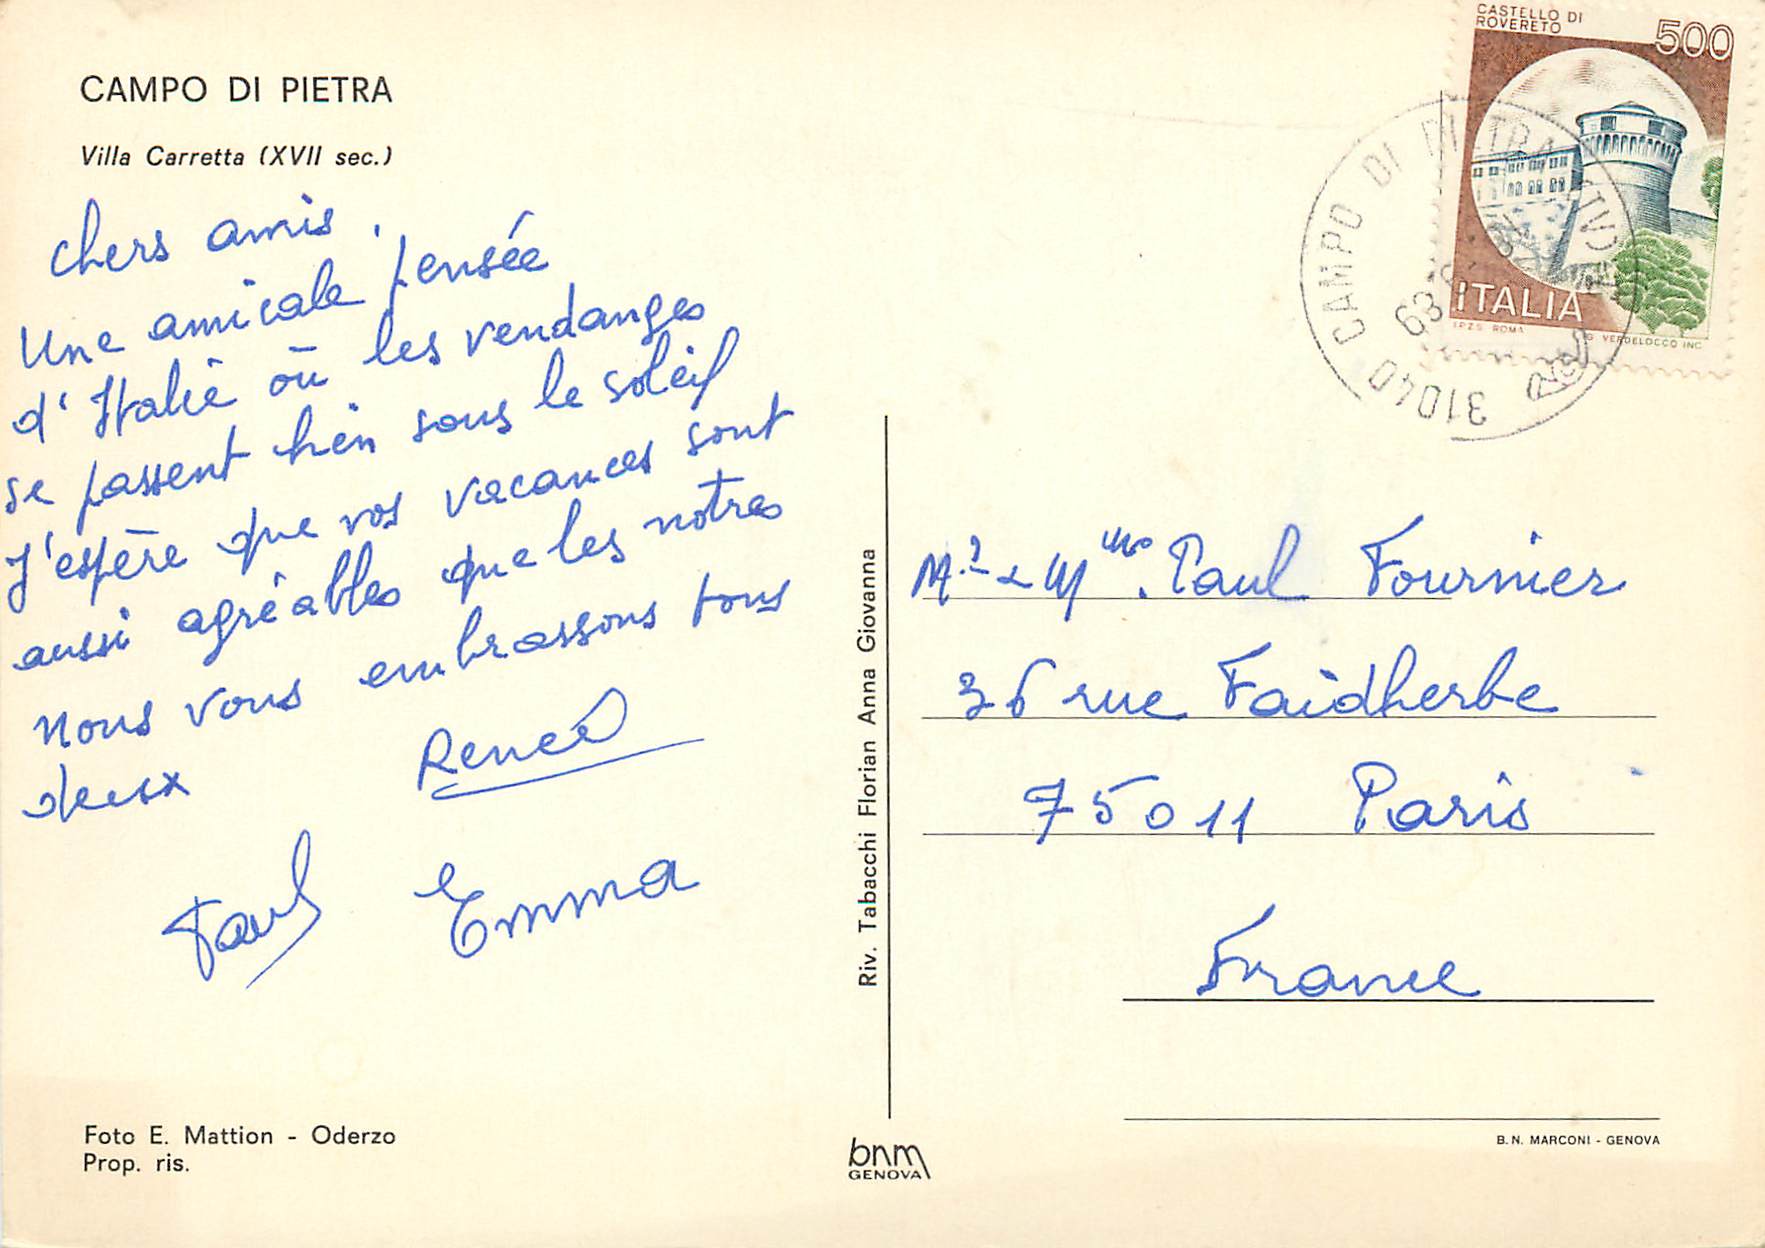 CAMPO DI PIETRA
Villa Carretta (XVII sec.)
chers amis.
Une amicale pensée
d'Italie où les vendanges
se passent bien sous le soleil
J'espère que vos vacances sont
aussi agréables que les notres
nous vous embrassons tous
deux
Renée
Paul
Emma
Foto E. Mattion - Oderzo
Prop. ris.
Riv. Tabacchi Florian Anna Giovanna
bnm
GENOVA
CASTELLO DI
ROVERETO
500
ITALIA
I.P.Z.S. ROMA
G. VERDELOCCO INC.
31040 CAMPO DI PIETRA (TV)
Mr & Mme. Paul Fournier
36 rue Faidherbe
75011 Paris
France
B.N. MARCONI - GENOVA